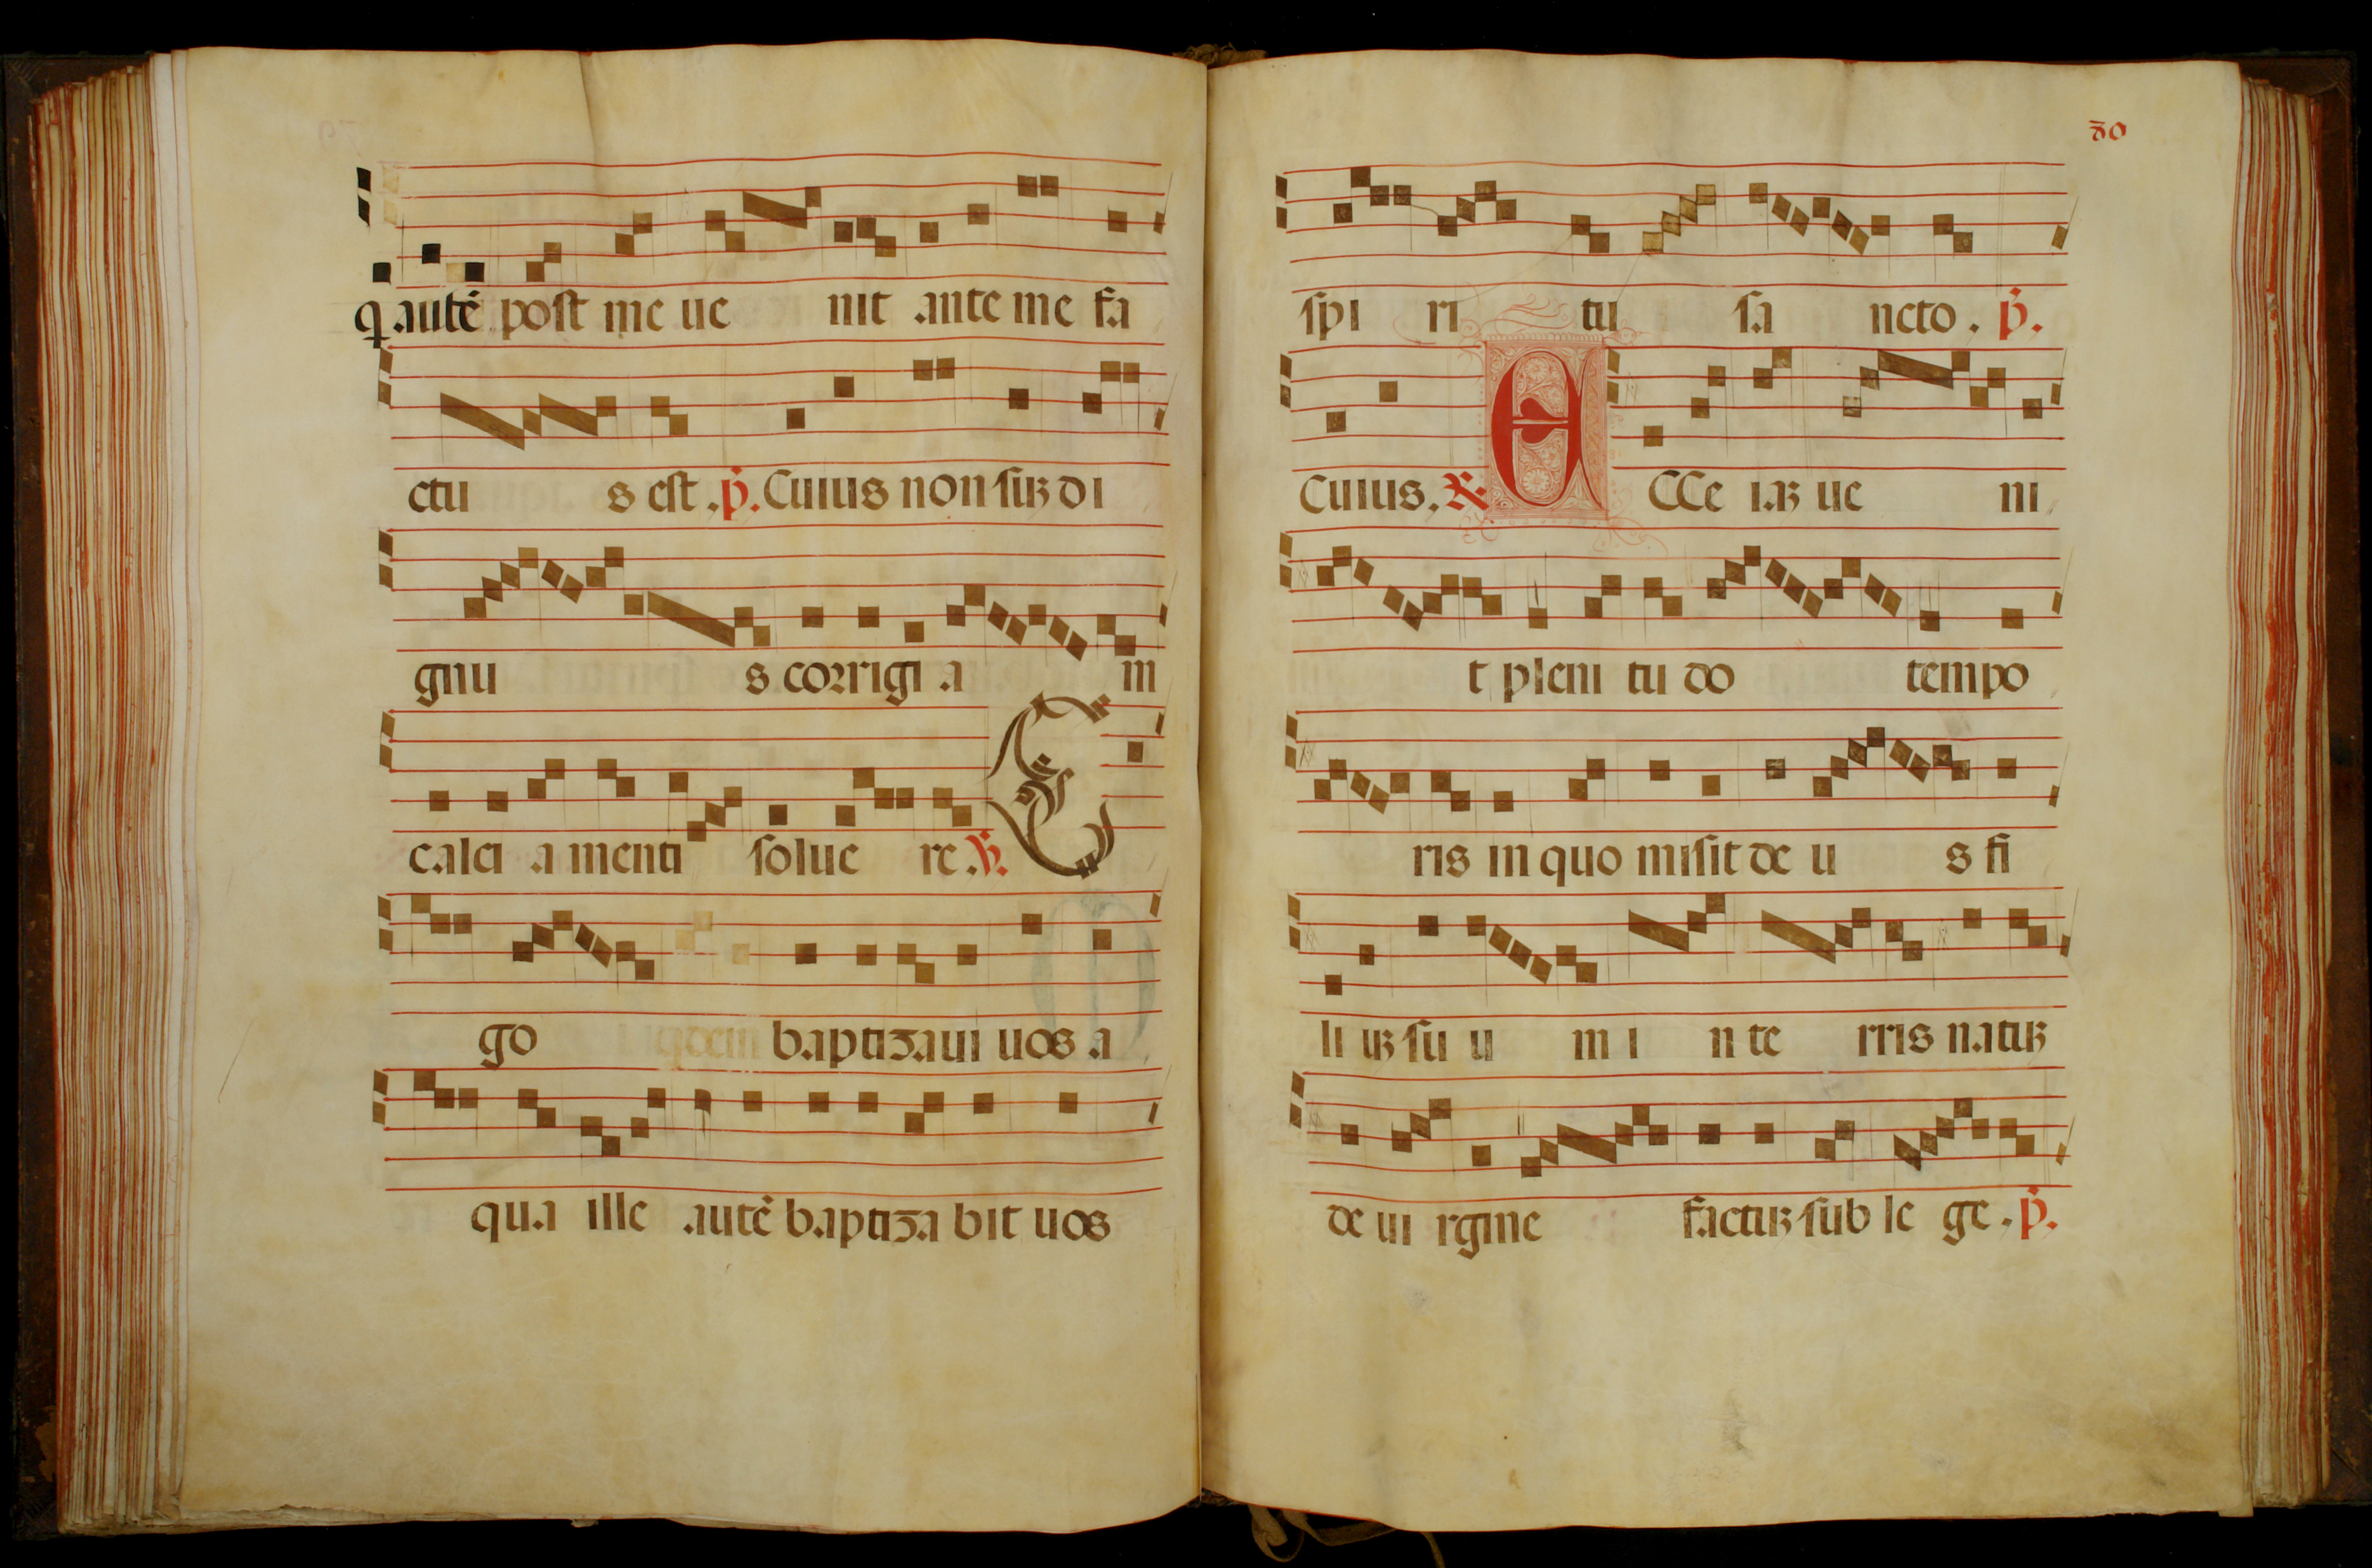 q autē post me ue nit ante me fa
ctu s est. p̄. Cuius non sūꝫ di
gnu s corrigi a m
calci a menti solue re. ℣. E
go qdem baptizaui uos a
qua ille autē baptiza bit uos
80
spi ri tu sa ncto. p̄.
Cuius. ℟ E CCe iaꝫ ue ni
t pleni tu do tempo
ris in quo misit de u s fi
li uꝫ su u m i n te rris natuꝫ
de ui rgine factuꝫ sub le ge. p̄.